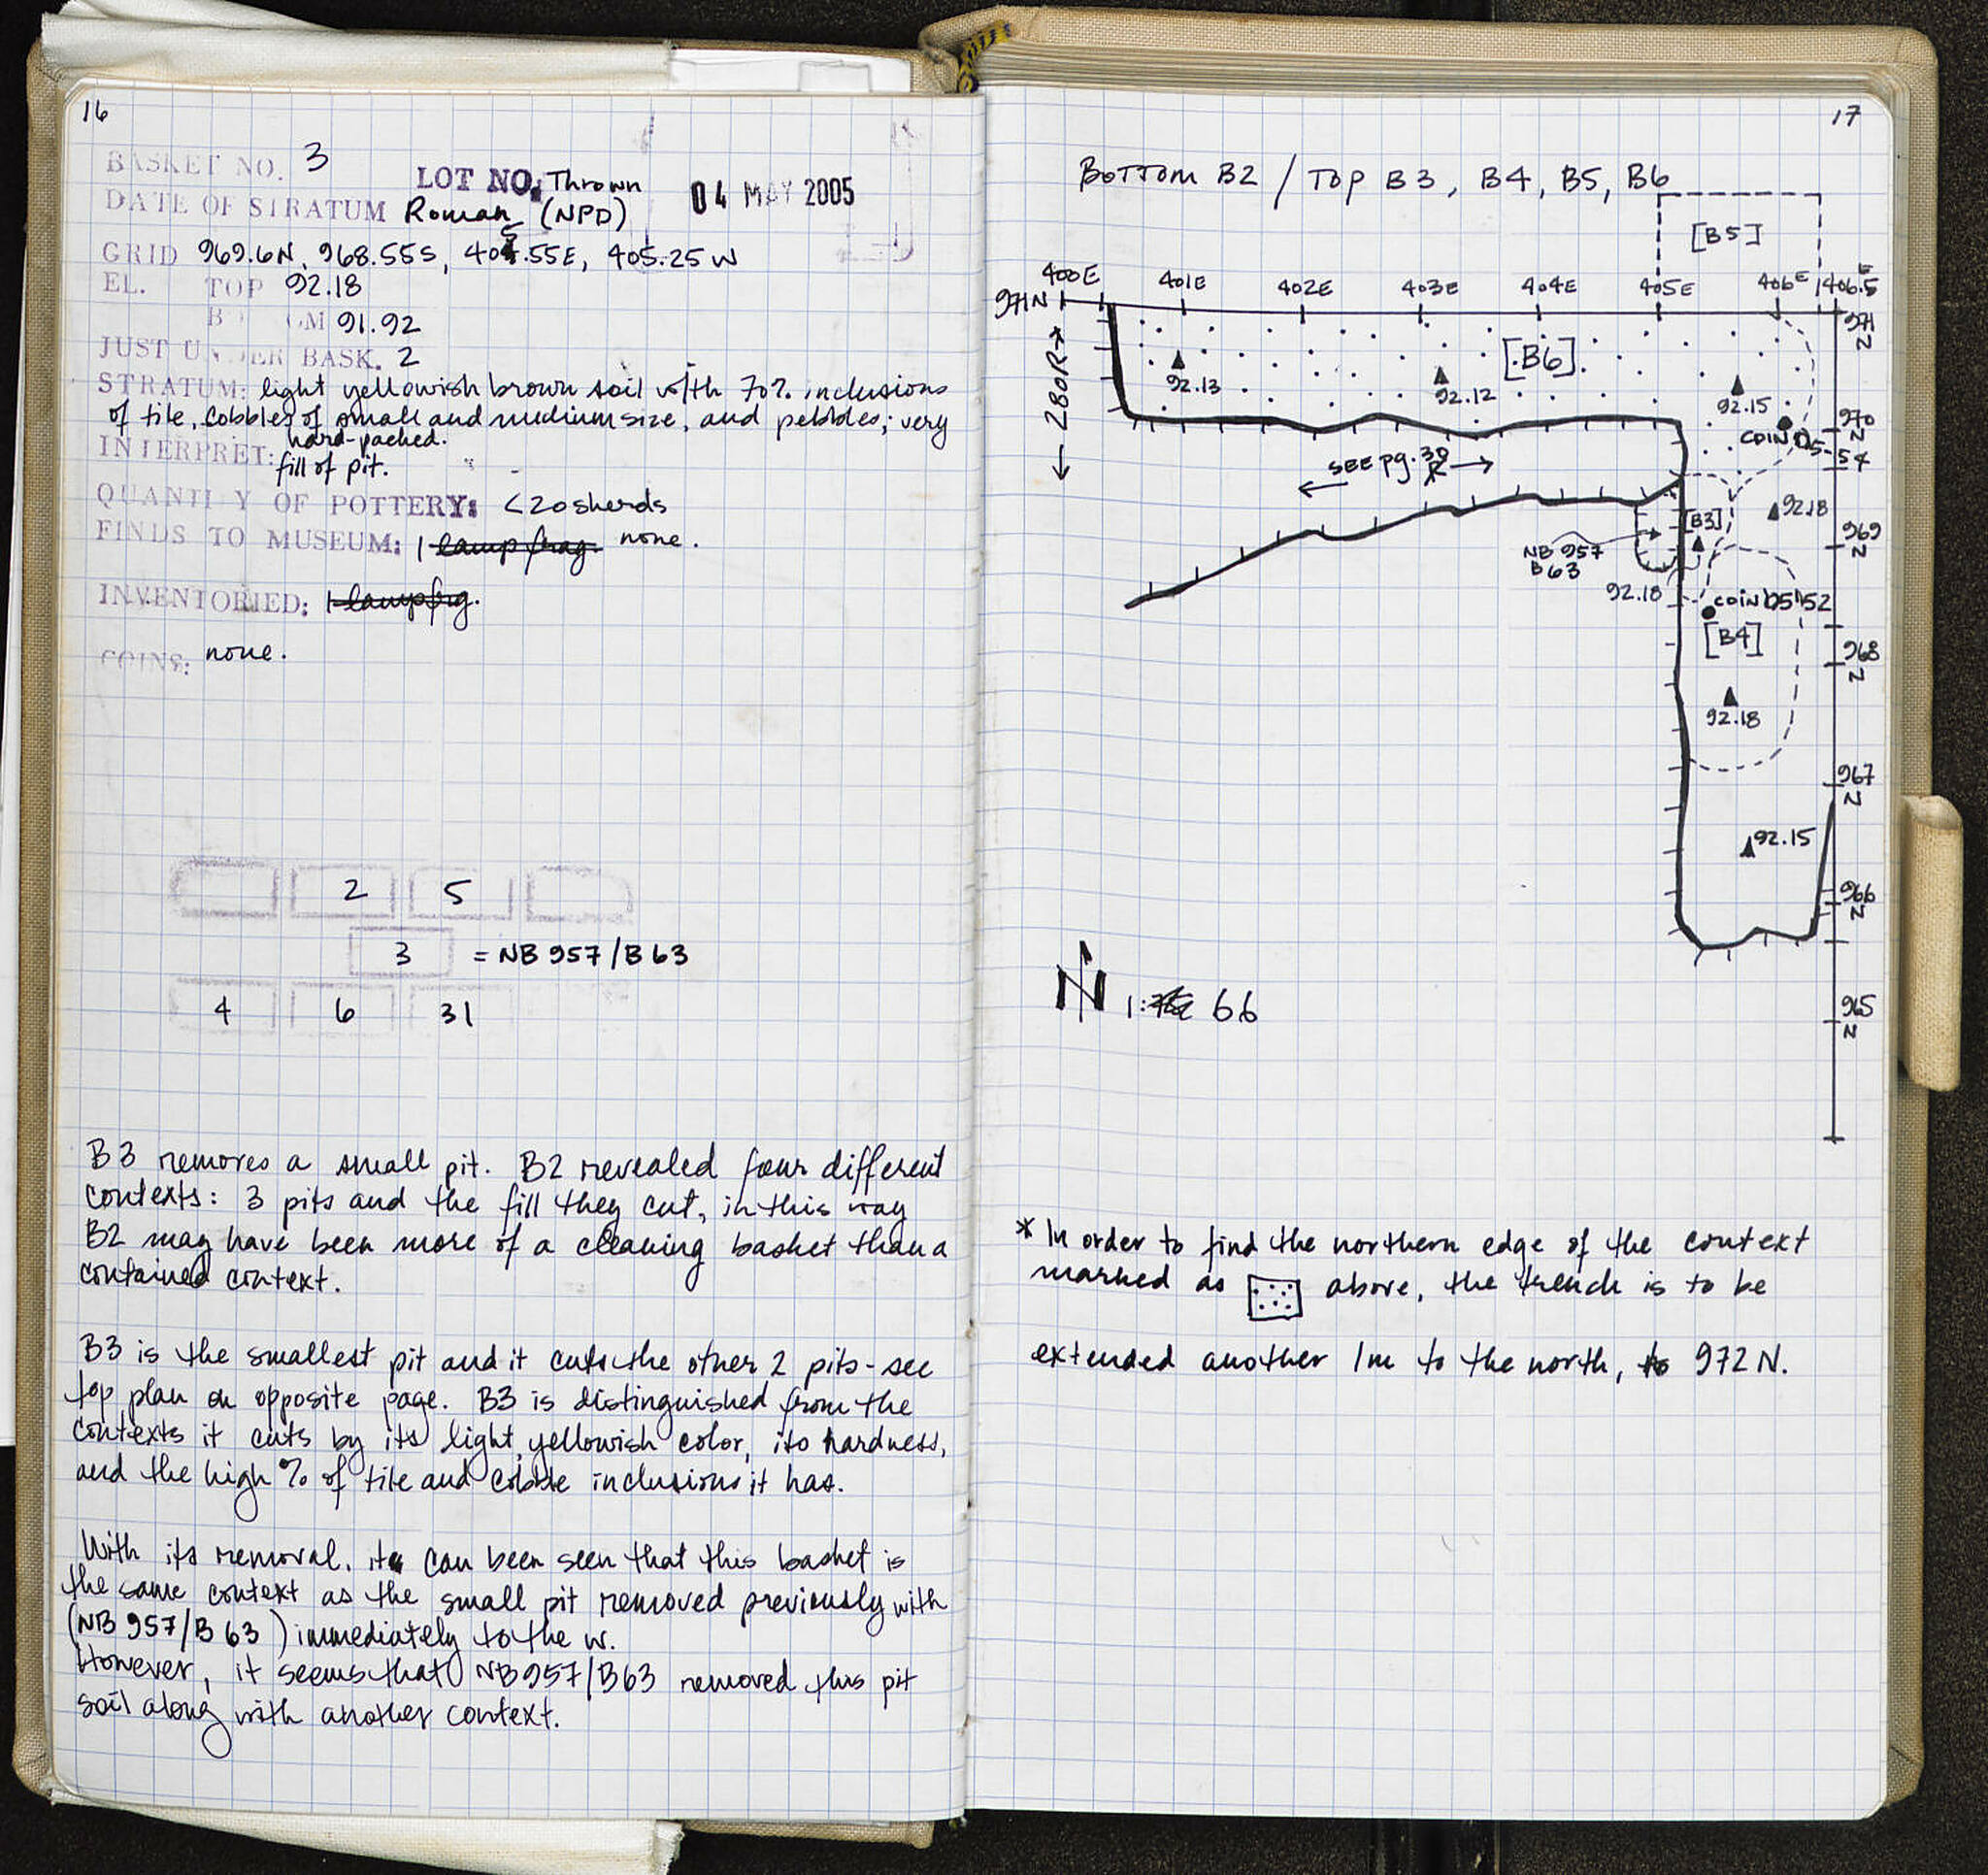 16
BASKET NO. 3
LOT NO. Thrown
04 MAY 2005
DATE OF STRATUM Roman (NPD)
GRID 969.6N, 968.55S, 405.55E, 405.25W
EL. TOP 92.18
BOTTOM 91.92
JUST UNDER BASK. 2
STRATUM: light yellowish brown soil with 70% inclusions
of tile, cobbles of small and medium size, and pebbles; very
hard-packed.
INTERPRET:
fill of pit.
QUANTITY OF POTTERY: <20 sherds
FINDS TO MUSEUM: 1 lamp frag. none.
INVENTORIED: 1 lamp frg.
COINS: none.
2 5
3 = NB 957/B 63
4 6 31
B3 removes a small pit. B2 revealed four different
contexts: 3 pits and the fill they cut, in this way
B2 may have been more of a cleaning basket than a
contained context.
B3 is the smallest pit and it cuts the other 2 pits - see
top plan on opposite page. B3 is distinguished from the
contexts it cuts by its light, yellowish color, its hardness,
and the high % of tile and cobble inclusions it has.
With its removal, it can been seen that this basket is
the same context as the small pit removed previously with
(NB 957/B 63) immediately to the W.
However, it seems that NB957/B63 removed this pit
soil along with another context.
17
BOTTOM B2 / TOP B3, B4, B5, B6
[B5]
400E 401E 402E 403E 404E 405E 406E 406.5E
971N
971 N
280R
[B6]
92.13
92.12
92.15
970 N
COIN 05-54
SEE pg. 38
92.18
[B3]
969 N
NB 957
B 63
92.18
COIN 05-52
[B4]
968 N
92.18
967 N
92.15
966 N
N 1: 66
965 N
* In order to find the northern edge of the context
marked as above, the trench is to be
extended another 1m to the north, to 972N.